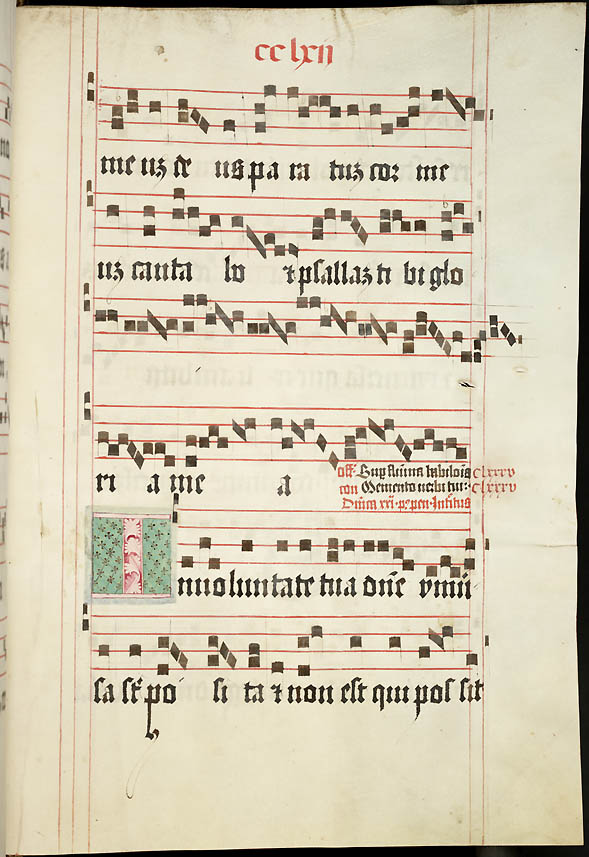 cc lxii
me uʒ de us pa ra tuʒ cor me
uʒ canta bo ⁊ psallaʒ ti bi glo
ri a me a
off. Sup flumina babilois clxxxv
con Memento uerbi tui clxxxv
Dnica xxi p⁹ pen Introitus
I nuoluntate tua dñe vnii
sa st̄ poi si ta ⁊ non est qui pos sit